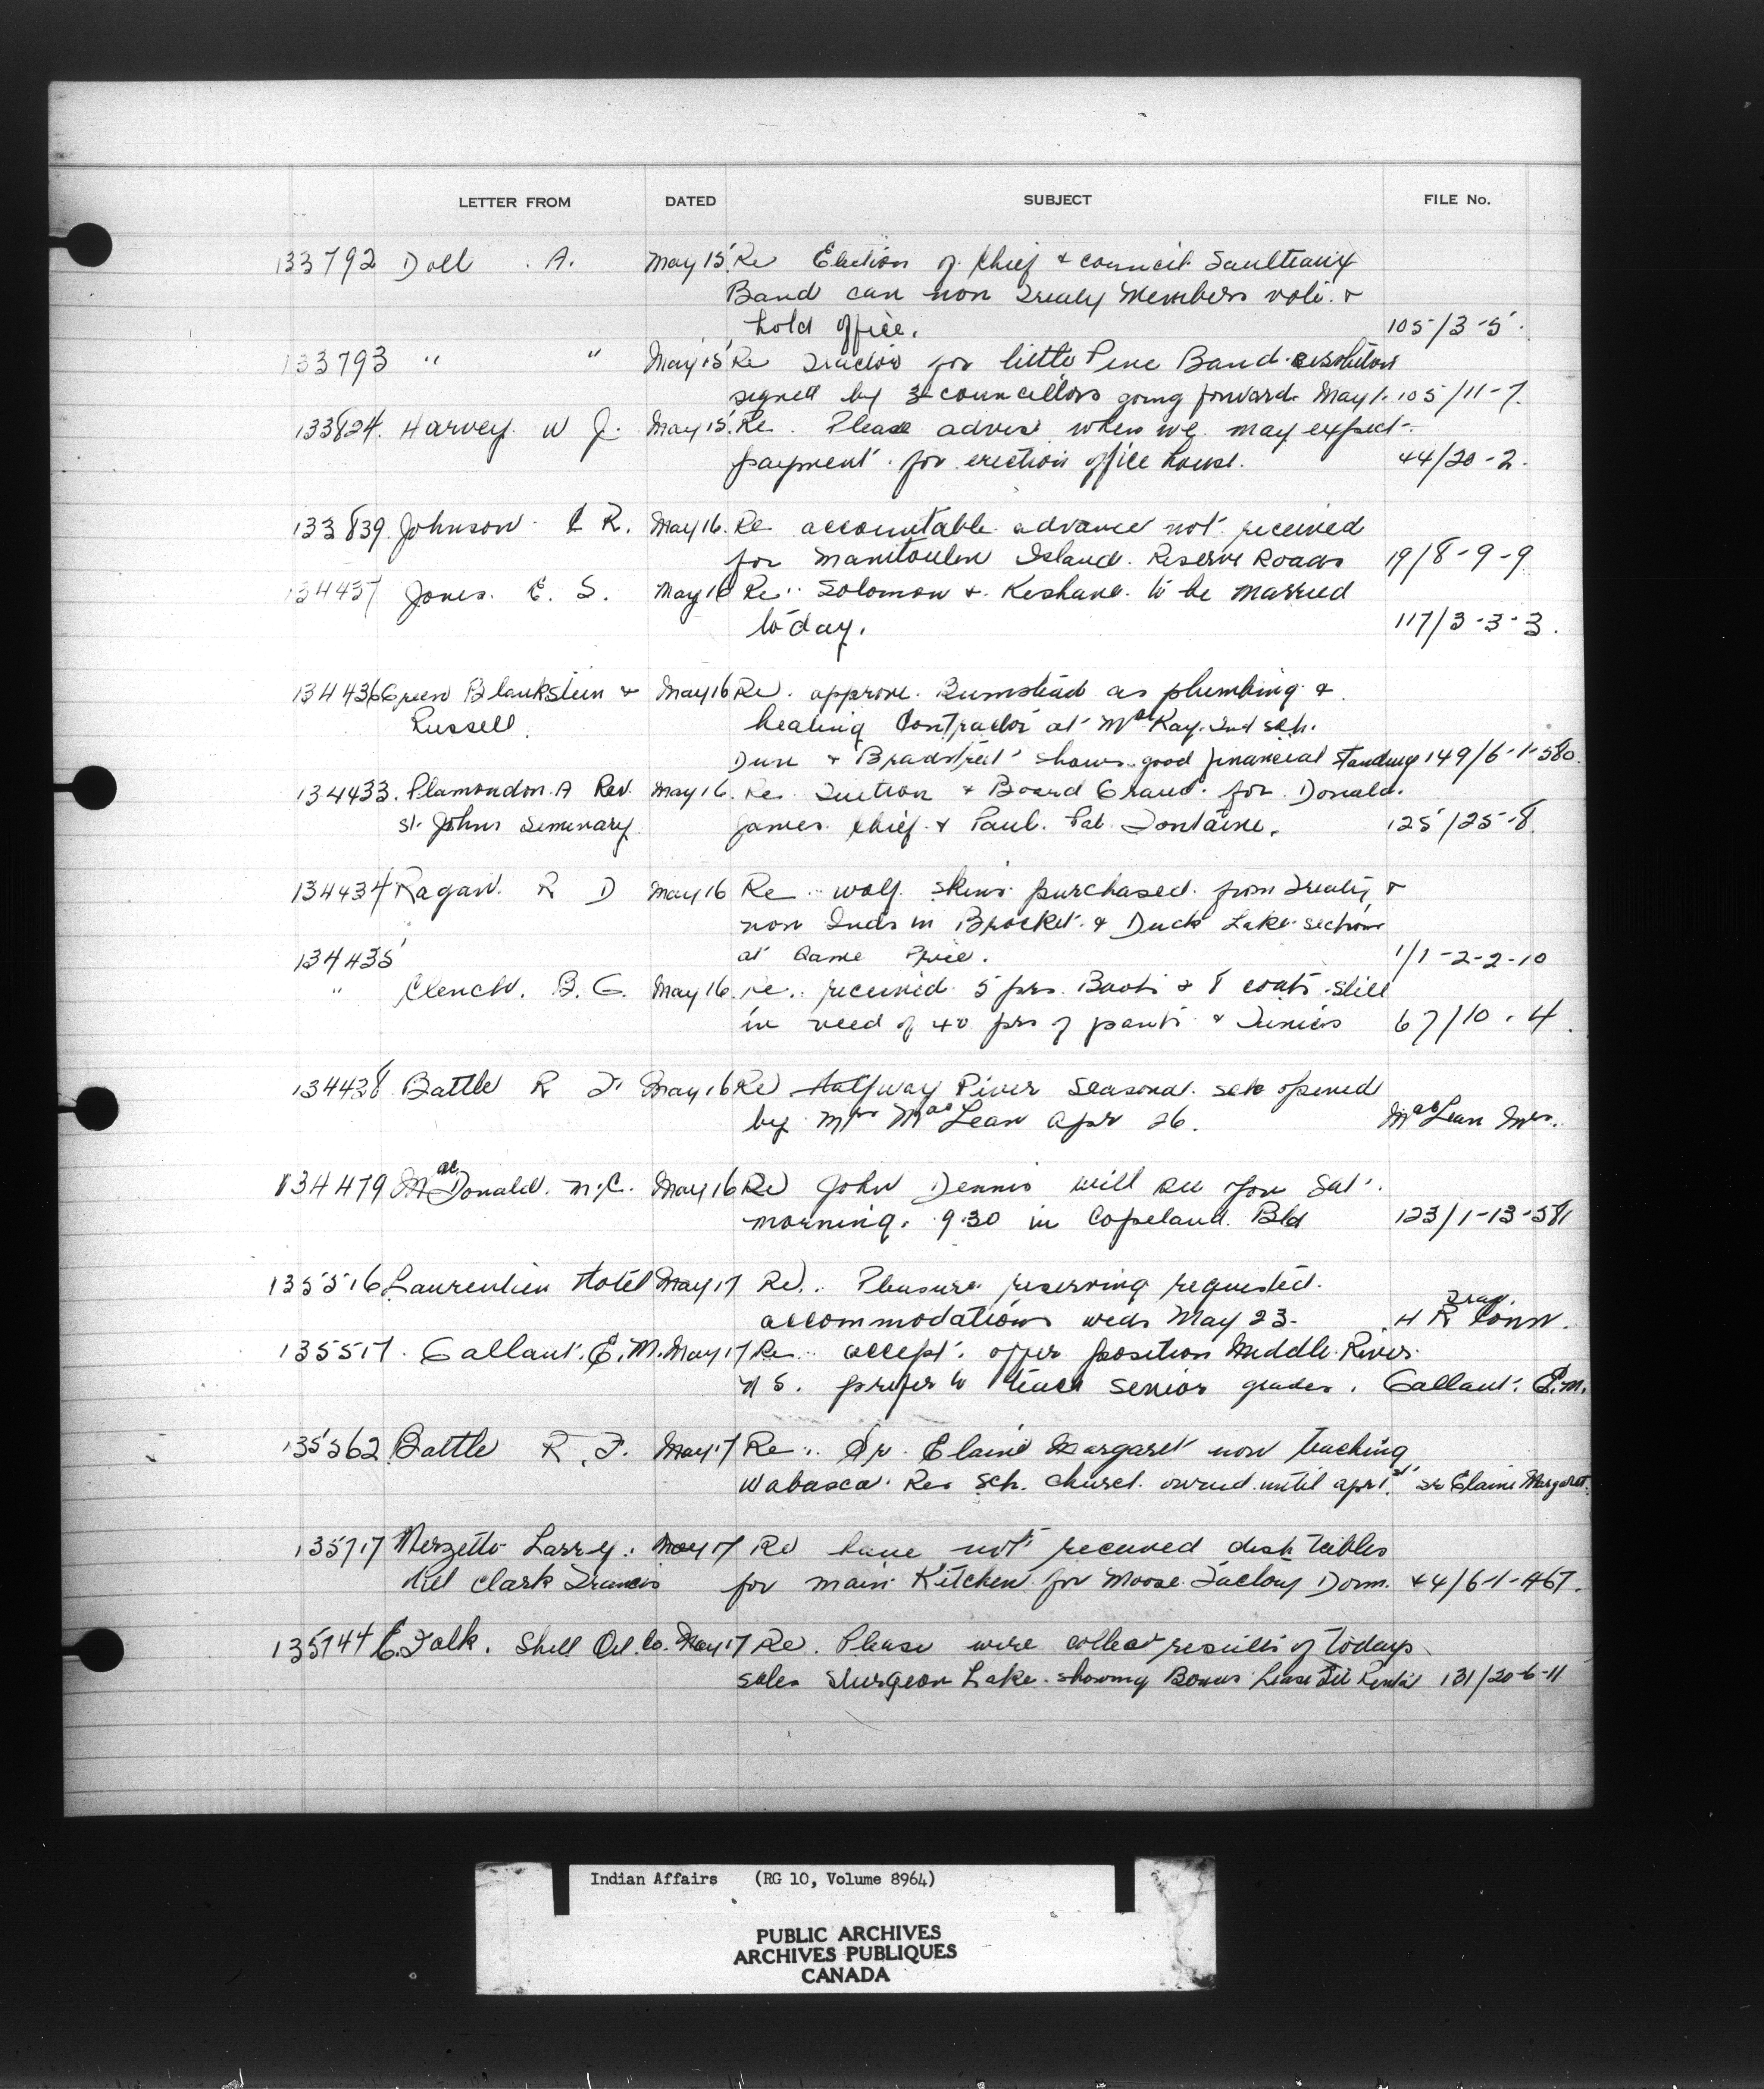 LETTER FROM DATED SUBJECT FILE No.
133792 Doll . A. May 15. Re Election of Chief & council Saulteaux
Band can non Treaty Members vote. &
hold office. 105/3-5.
133793 " " May 15 Re Tractor for little Pine Band resolution
signed by 3 councillors going forward. May 1. 105/11-7.
133824. Harvey. W J. May 15. Re. Please advise when we may expect
payment. for erection office house. 44/20-2.
133839. Johnson R. May 16. Re accountable advance not received
for Manitoulin Island. Reserve Roads 19/8-9-9
134437 Jones. E. S. May 16 Re.. Solomon & Keshane. to be married
to day. 117/3-3-3.
134436 Green Blankstein & May 16 Re. approve. Bumstead as plumbing &
Russell. heating Contractor at MacKay. Ind sch.
Dun & Bradstreet shows good financial standing 149/6-1-580.
134433. Plamondon. A Rev. May 16. Re. Tuition & Board Grant. for Donald.
St. Johns Seminary. James. Chief. & Paul. Pat. Fontaine. 125/25-8.
134434 Ragan. R D May 16 Re.. wolf. skins purchased. from Treaty &
non Inds in Brocket. & Duck Lake. sections
134435 at same Price. 1/1-2-2-10
" Clench. B. G. May 16. re.. received 5 prs. Boots & 8 coats. still
in need of 40 prs of pants & Tunics 67/10.4.
134428 Battle R F May 16 Re Halfway River Seasonal. sch opened
by Mrs MacLean Apr 26. MacLean Mrs.
134479 MacDonald. N.C. May 16 Re John Dennis will see you Sat.
morning. 9.30 in Copeland. Bld 123/1-13-581
135516 Laurentien Hotel May 17 Re.. Pleasure reserving requested.
accommodations weds May 23. H R Conn.
135517. Gallant. E. M. May 17 Re.. accept. offer position Middle River.
N S. prefer to teach senior grades. Gallant. E.M.
135562 Battle R. F. May 17 Re.. Sr. Elaine Margaret now teaching
Wabasca. Res Sch. church. owned. until apr 1st. Sr Elaine Margaret.
135717 Larry. May 17 Re have not received dish tables
Clark Francis for main Kitchen for Moose Factory Dorm. 44/6-1-467.
135744 C. Falk. Shell Oil. Co. May 17 Re. Please wire collect results of todays
sales Sturgeon Lake. showing Bonus Lease Rental 131/20-6-11
Indian Affairs (RG 10, Volume 8964)
PUBLIC ARCHIVES
ARCHIVES PUBLIQUES
CANADA